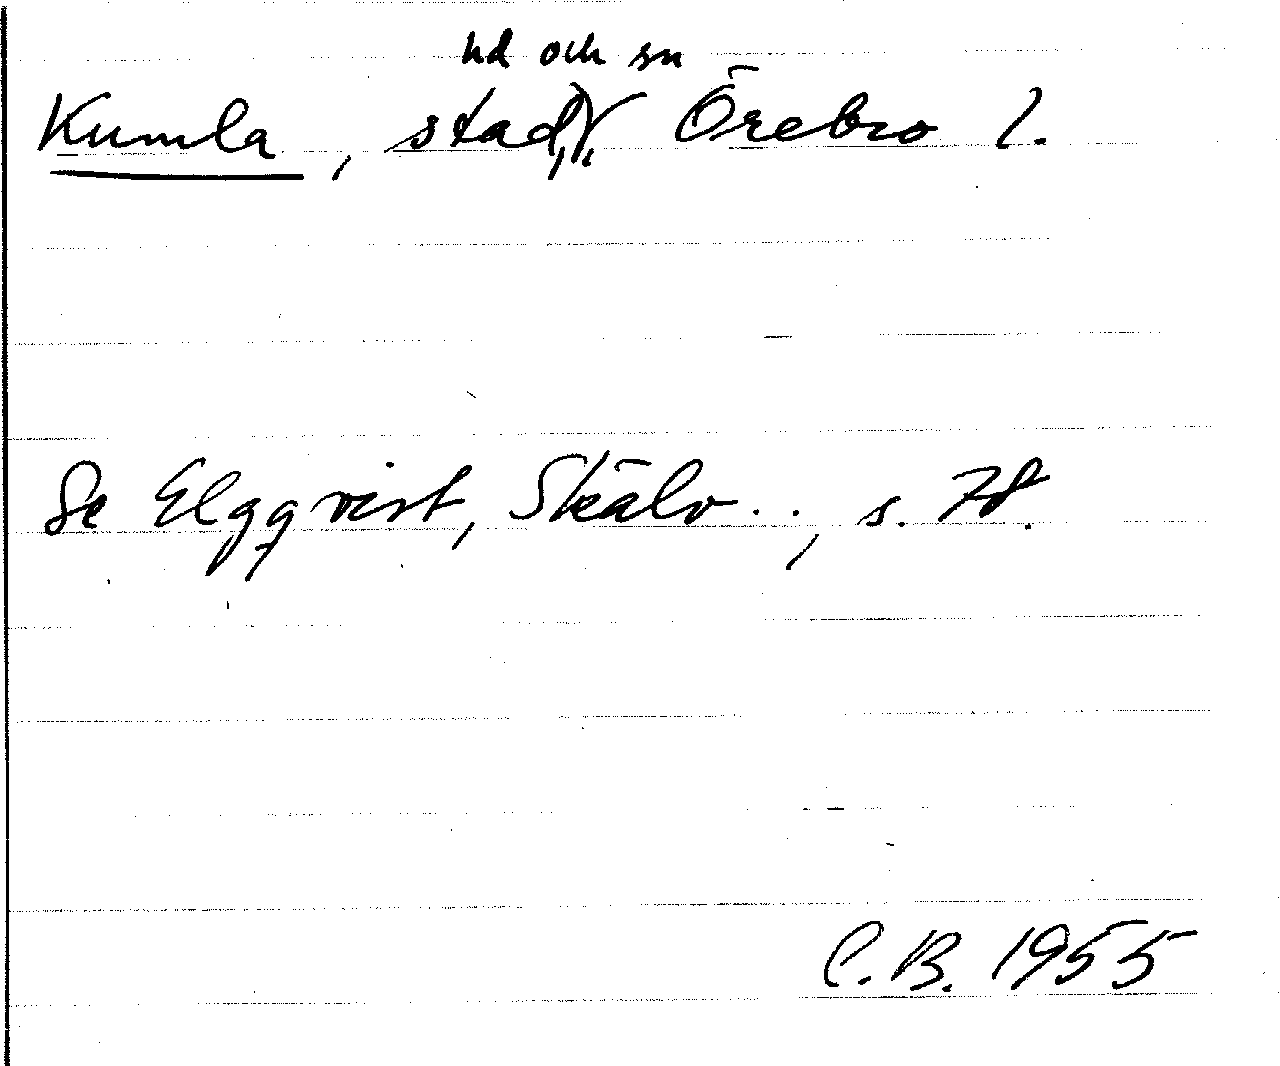 hd och sn
Kumla, stad, Örebro l.
Se Elgqvist, Skälv.., s.
C.B. 1955